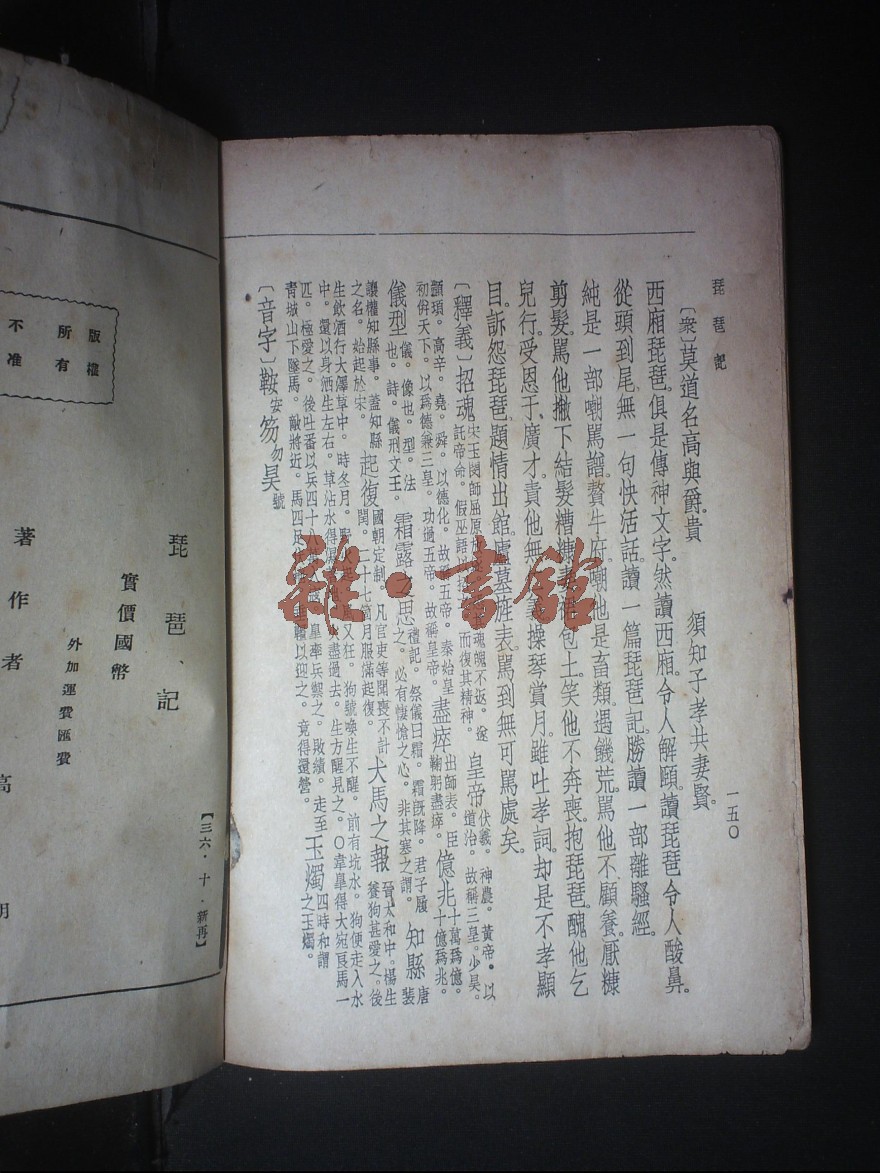 琵琶記
一五〇
〔衆〕莫道名高與爵貴 須知子孝共妻賢。
西廂琵琶。俱是傳神文字。然讀西廂。令人解頤。讀琵琶令人酸鼻。
從頭到尾。無一句快活話。讀一篇琵琶記。勝讀一部離騷經。
純是一部嘲罵譜。贅牛府。嘲他是畜類。遇饑荒。罵他不顧養。厭糠
剪髮。罵他撇下結髮糟糠妻。裙包土。笑他不奔喪。抱琵琶。醜他乞
兒行。受恩于廣才。責他無義。操琴賞月。雖吐孝詞。却是不孝題
目。訴怨琵琶。題情出館。廬墓旌表。罵到無可罵處矣。
〔釋義〕招魂 宋玉閔師屈原 魂魄不返。遂
託帝命。假巫語 而復其精神。
皇帝 伏義。神農。黃帝。以
道治。故稱三皇。少昊。
顓頊。高辛。堯。舜。以德化。故稱五帝。秦始皇
初併天下。以爲德兼三皇。功過五帝。故稱皇帝。
盡瘁 出師表。臣
鞠躬盡瘁。
億兆 十萬爲億。
十億爲兆。
儀型 儀。像也。型。法
也。詩。儀刑文王。
霜露之思 禮記。祭儀曰霜。霜旣降。君子履
之。必有悽愴之心。非其寒之謂。
知縣 唐
裴
讓權知縣事。蓋知縣
之名。始起於宋。
起復 國朝定制。凡官吏等聞喪不計
閏。二十七箇月服滿起復。
犬馬之報 晉太和中。楊生
養狗甚愛之。後
生飲酒行大澤草中。時冬月。 又狂。狗號喚生不醒。前有坑水。狗便走入水
中。還以身洒生左右。草沾水得 火盡過去。生方醒見之。〇韋臯得大宛良馬一
匹。極愛之。後吐番以兵四十八 臯率兵禦之。敗績。走至
青城山下墜馬。敵將近。馬四足 韁以迎之。竟得還營。
玉燭 四時和謂
之玉燭。
〔音字〕鞍 安 笏 勿 昊 號
雜·書館
版權
所有
不准
琵琶記
實價國幣
外加運費匯費
著作者 高 明
【三六·十·新再】